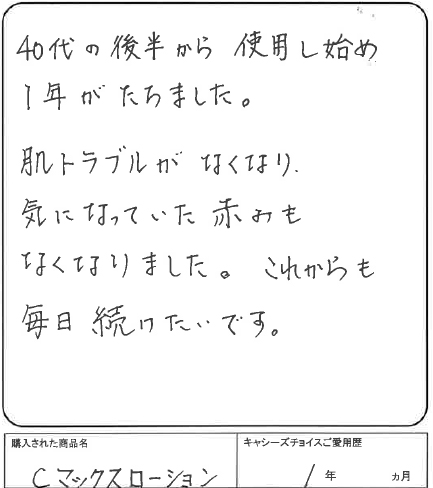 40代の後半から 使用し始め
1年がたちました。
肌トラブルが なくなり、
気になっていた 赤みも
なくなりました。これからも
毎日 続けたいです。
購入された商品名
Cマックスローション
キャシーズチョイスご愛用歴
1年 ヵ月